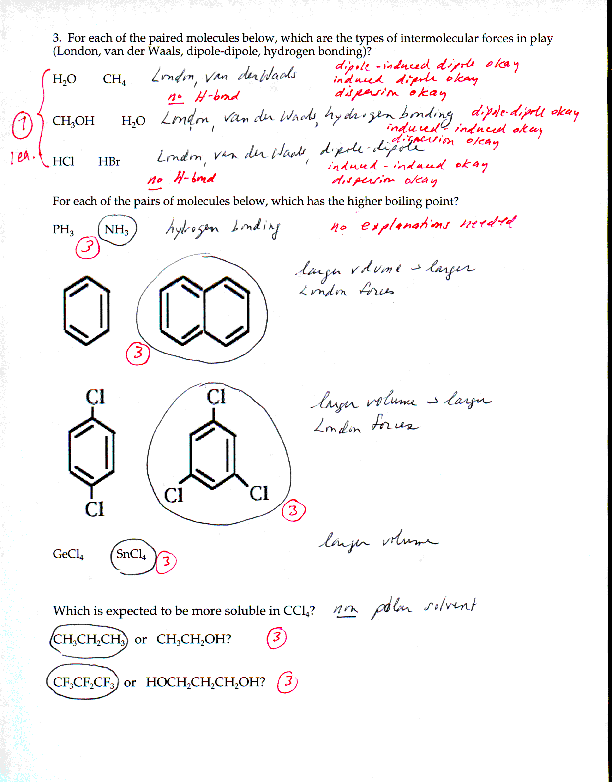 3. For each of the paired molecules below, which are the types of intermolecular forces in play
(London, van der Waals, dipole-dipole, hydrogen bonding)?
H₂O CH₄ London, van der Waals dipole-induced dipole okay
induced dipole okay
no H-bond dispersion okay
① CH₃OH H₂O London, van der Waals, hydrogen bonding dipole-dipole okay
induced-induced okay
dispersion okay
1 ea. HCl HBr London, van der Waals, dipole-dipole
induced-induced okay
no H-bond dispersion okay
For each of the pairs of molecules below, which has the higher boiling point?
PH₃ NH₃ hydrogen bonding no explanations needed
③
larger volume → larger
London forces
③
Cl Cl
larger volume → larger
London forces
Cl Cl
Cl
③
larger volume
GeCl₄ SnCl₄ ③
Which is expected to be more soluble in CCl₄? non polar solvent
CH₃CH₂CH₃ or CH₃CH₂OH? ③
CF₃CF₂CF₃ or HOCH₂CH₂CH₂OH? ③